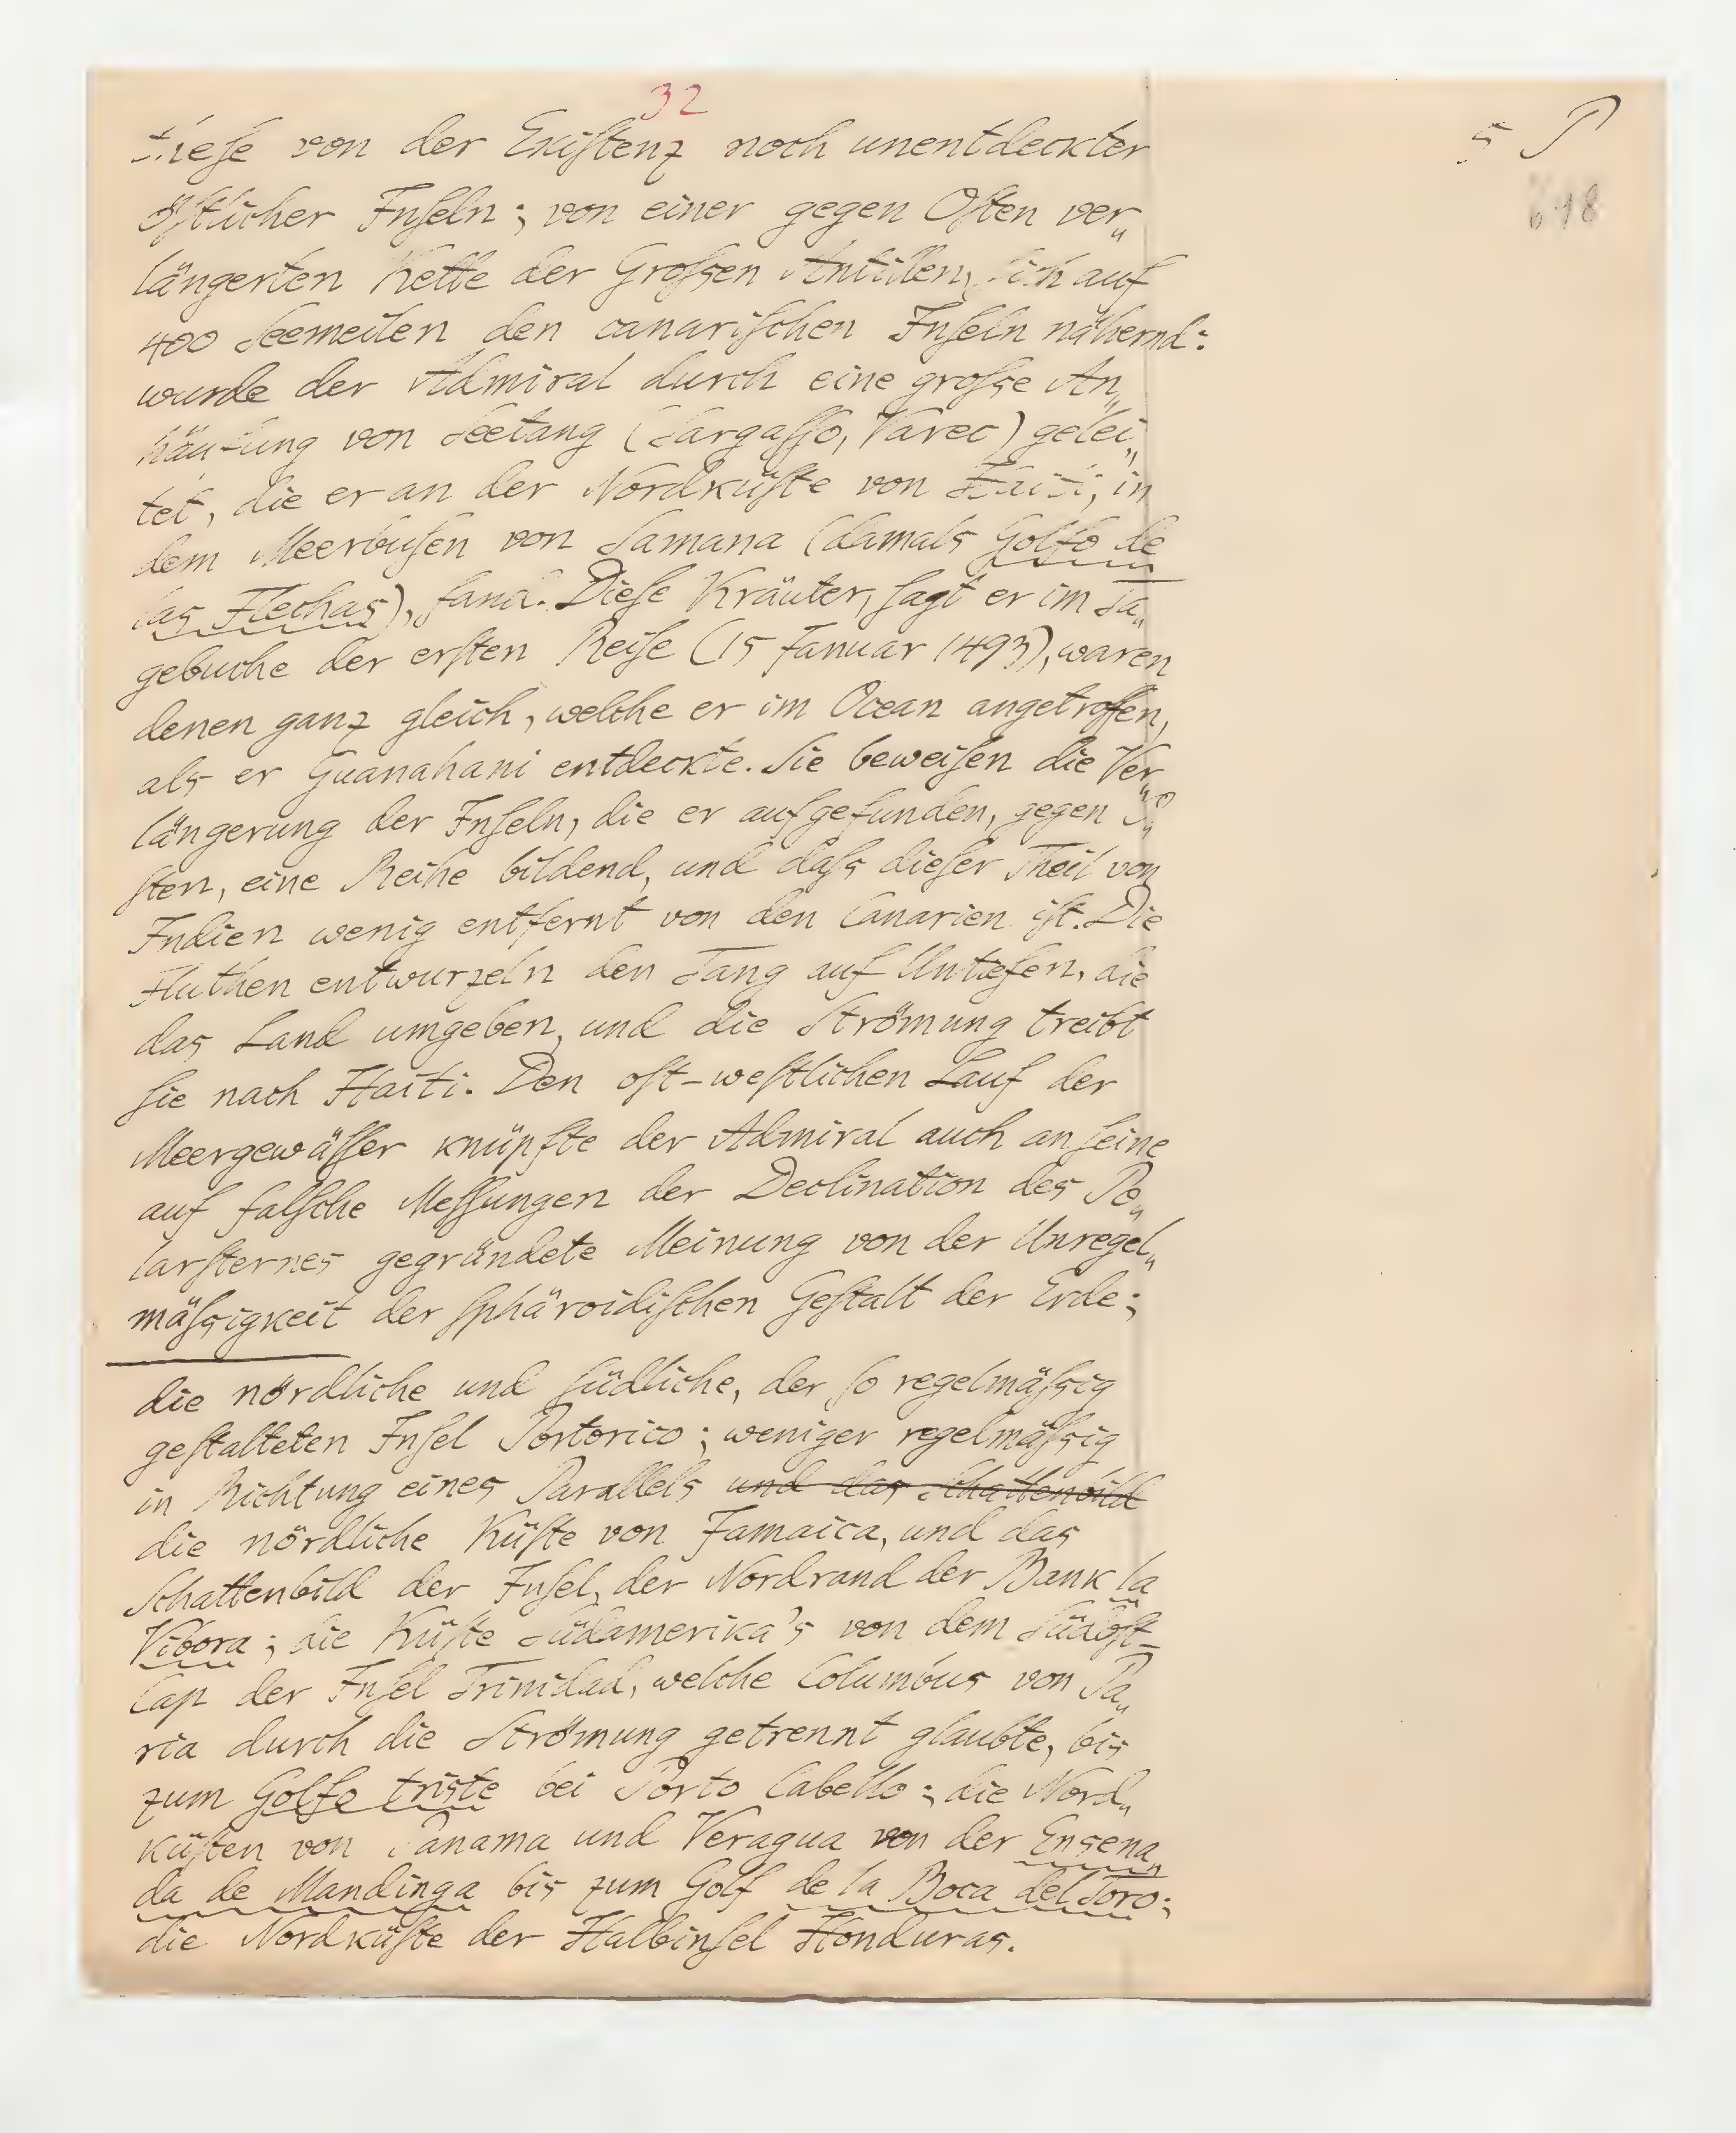 32
5 P
648
these von der Existenz noch unentdeckter
östlicher Inseln; von einer gegen Osten ver„
längerten Kette der Großen Antillen, sich auf
400 Seemeilen den canarischen Inseln nähernd:
wurde der Admiral durch eine große An„
häufung von Seetang (Sargasso, Varec) gelei„
tet, die er an der Nordküste von Haiti, in
dem Meerbusen von Samana (damals Golfo de
las Flechas), fand. Diese Kräuter, sagt er im Ta„
gebuche der ersten Reise (15 Januar 1493), waren
denen ganz gleich, welche er im Ocean angetroffen,
als er Guanahani entdeckte. Sie beweisen die Ver„
längerung der Inseln, die er aufgefunden, gegen O„
sten, eine Reihe bildend, und daß dieser Theil von
Indien wenig entfernt von den Canarien ist. Die
Fluthen entwurzeln den Tang auf Untiefen, die
das Land umgeben, und die Strömung treibt
sie nach Haiti. Den ost-westlichen Lauf der
Meergewässer knüpfte der Admiral auch an seine
auf falsche Messungen der Declination des Po„
larsternes gegründete Meinung von der Unregel„
mäßigkeit der sphäroidischen Gestalt der Erde;
die nördliche und südliche, der so regelmäßig
gestalteten Insel Portorico; weniger regelmäßig
in Richtung eines Parallels und das Schattenbild
die nördliche Küste von Jamaica, und das
Schattenbild der Insel, der Nordrand der Bank la
Vibora; die Küste Südamerika's von dem Südost-
Cap der Insel Trinidad, welche Columbus von Pa„
ria durch die Strömung getrennt glaubte, bis
zum Golfo triste bei Porto Cabello; die Nord„
küsten von Panama und Veragua von der Ensena„
da de Mandinga bis zum Golf de la Boca del Toro;
die Nordküste der Halbinsel Honduras.